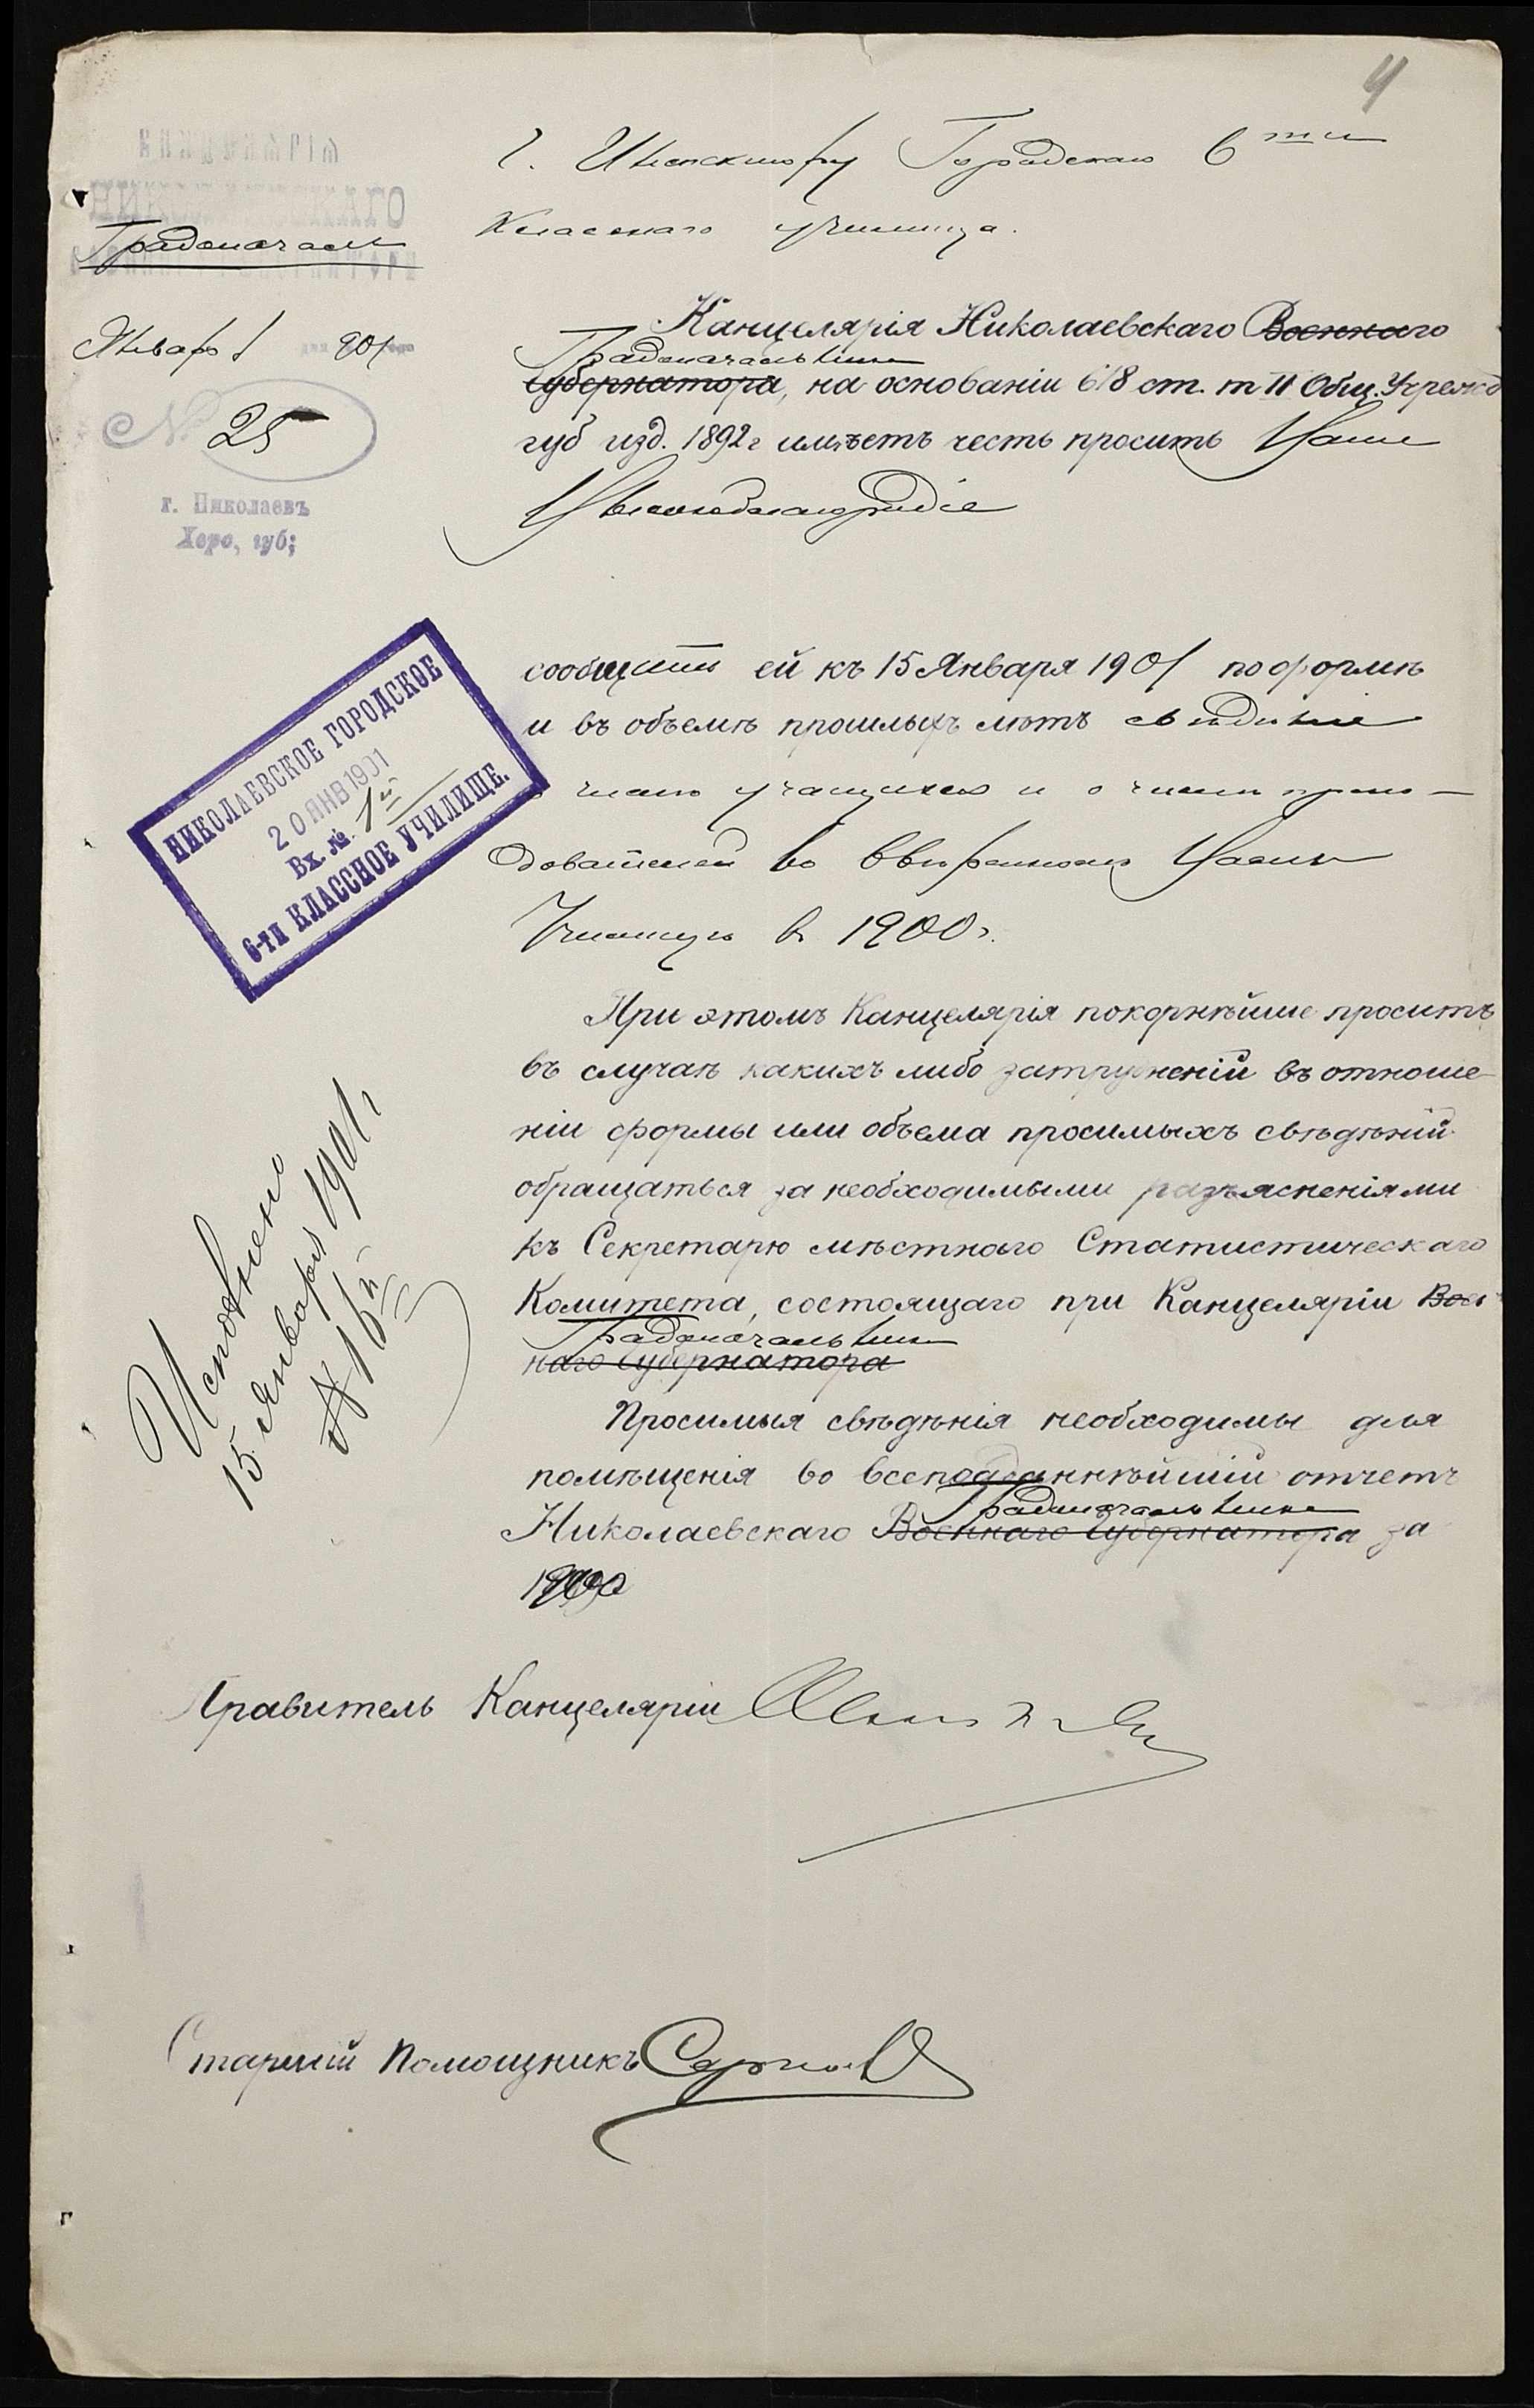 4
Г. Инспектору Городского 6 ти
Класснаго училища.
Градоначаль
Январь 1 901
№ 25
г. Николаевъ
Херс, губ;
Канцелярія Николаевскаго Военнаго
Градоначальника
Губернатора, на основаніи 618 ст. т II Общ. Учрежд
губ изд. 1892 г имѣетъ честь просить Ваше
Высокоблагородіе
сообщить ей къ 15 Января 1901 по формѣ
и въ объемѣ прошлыхъ лѣтъ свѣдѣніе
числѣ учащихся и о числѣ препо-
давателей во ввѣренномъ Вамъ
Училищѣ въ 1900 г.
НИКОЛАЕВСКОЕ ГОРОДСКОЕ
20 ЯНВ 1901
Вх. №. 1й
6-ти КЛАССНОЕ УЧИЛИЩЕ.
При этомъ Канцелярія покорнѣйше проситъ
въ случаѣ какихъ либо затрудненій въ отноше
ніи формы или объема просимыхъ свѣдѣній
обращаться за необходимыми разъясненіями
къ Секретарю мѣстнаго Статистическаго
Комитета, состоящаго при Канцеляріи Воен
Градоначальника
наго Губернатора
Исполнено
15 Января 1901 г
№ 16й
Просимыя свѣдѣнія необходимы для
помѣщенія во всеподданнѣйшій отчетъ
Градоначальника
Николаевскаго Военнаго Губернатора за
1900
Правитель Канцеляріи
Старшій Помощникъ